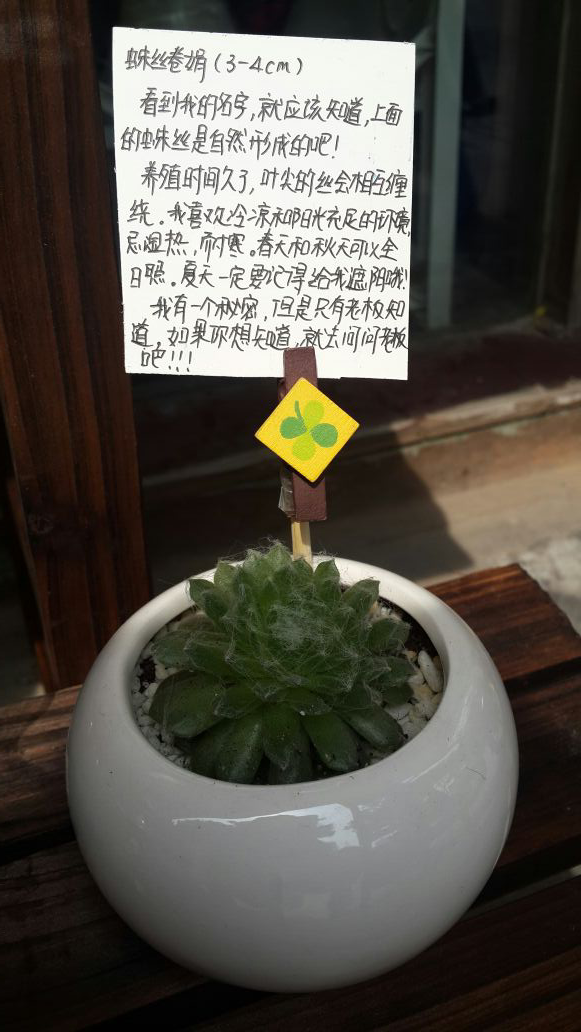 蛛丝卷娟(3-4cm)
看到我的名字,就应该知道,上面
的蜘蛛丝是自然形成的吧!
养殖时间久了,叶尖的丝会相互缠
绕。我喜欢冷凉和阳光充足的环境,
忌湿热,耐寒。春天和秋天可以全
日照。夏天一定要记得给我遮阴哦!
我有一个秘密,但是只有老板知
道,如果你想知道,就去问问老板
吧!!!